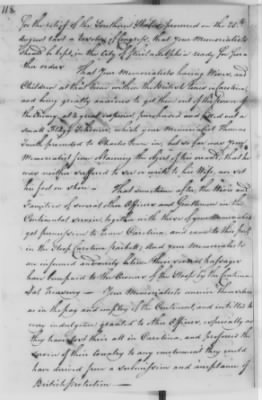 118.
for the relief of the Southern States, procured on the 25th
August last a Resolve of Congress, that your Memorialists
should be kept in the City of Philadelphia ready for fur-
ther orders
That your Memorialists having Wives and
Children at that time within the British Lines in Carolina,
and being greatly anxious to get them out of the power of
the Enemy, at a great expence purchased and fitted out a
small Flag Schooner, which your Memorialist Thomas
Tusth proceeded to Charles Town in, but so far was your
Memorialist from attaining the object of his wishes, that he
was neither suffered to see or write to his Wife, or set
his foot on shore
That sometime after the Wives and
Families of several other Officers and Gentlemen in the
Continental service, together with those of your Memorialists
got permission to leave Carolina, and came to this port
in the Sloop Carolina Packet; And your Memorialists
are informed and verily believe their several passages
have been paid to the Owners of the Sloop by the Continen-
tal Treasury — Your Memorialists conceive themselves
as in the pay and employ of the Continent, and intitled to
every indulgence granted to other Officers, especially as
they have lost their all in Carolina, and preferred the
service of their Country to any emolument they could
have derived from a submission and acceptance of
British protection —